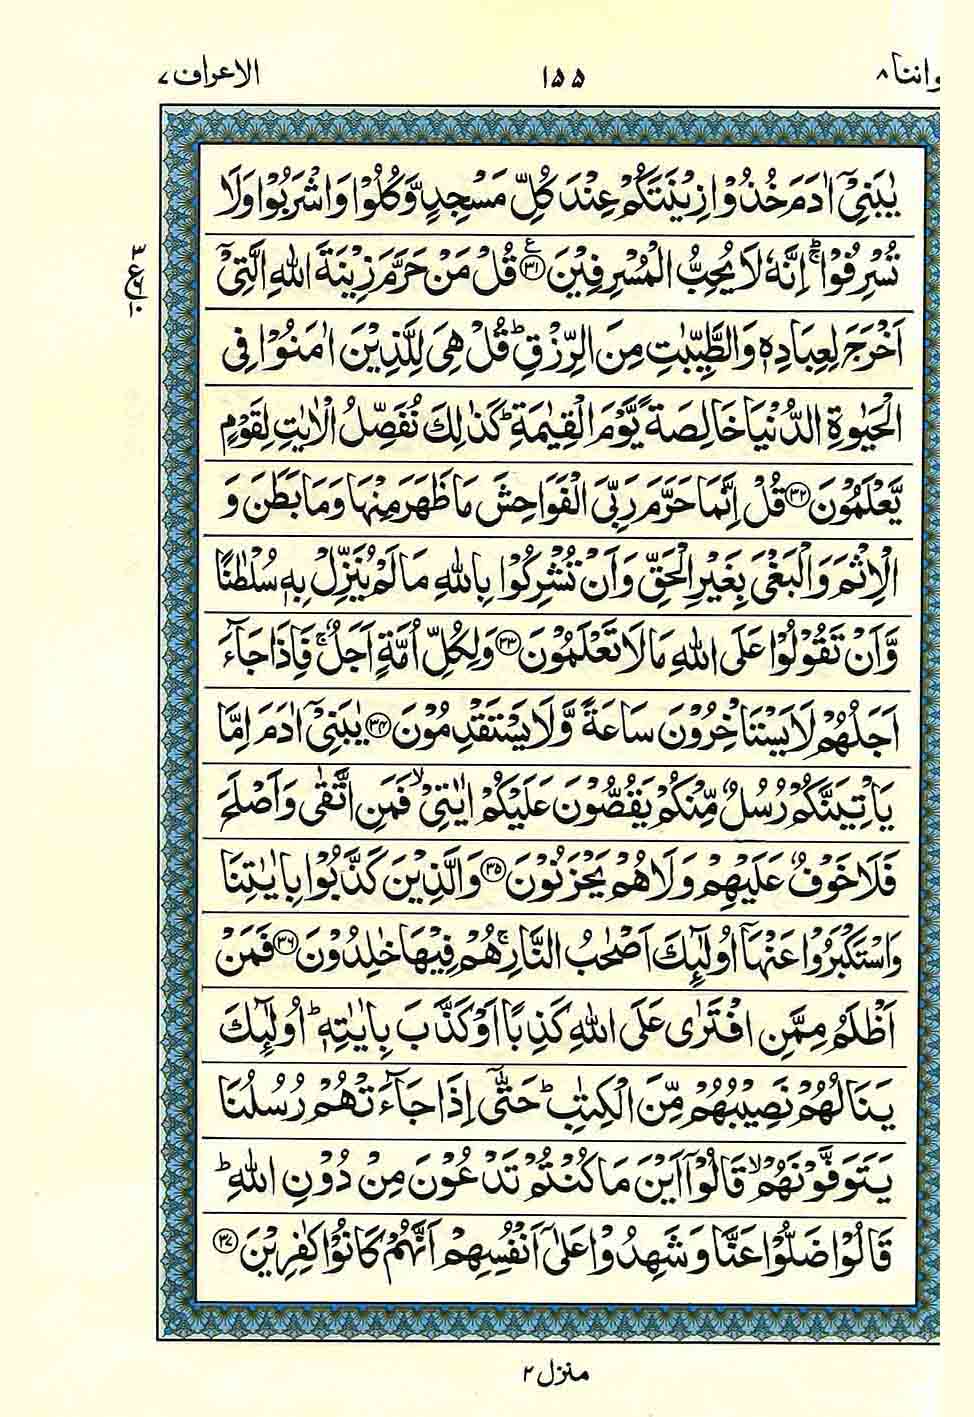 ولو اننا ۸ ۱۵۵ الاعراف ۷
يٰبَنِىْۤ اٰدَمَ خُذُوْا زِيْنَتَكُمْ عِنْدَ كُلِّ مَسْجِدٍ وَّكُلُوْا وَاشْرَبُوْا وَلَا
تُسْرِفُوْا ۚ اِنَّهٗ لَا يُحِبُّ الْمُسْرِفِيْنَ ﴿۳۱﴾ ع قُلْ مَنْ حَرَّمَ زِيْنَةَ اللّٰهِ الَّتِىْۤ
۳ ع ۶ ۱۰
اَخْرَجَ لِعِبَادِهٖ وَالطَّيِّبٰتِ مِنَ الرِّزْقِ ؕ قُلْ هِىَ لِلَّذِيْنَ اٰمَنُوْا فِى
الْحَيٰوةِ الدُّنْيَا خَالِصَةً يَّوْمَ الْقِيٰمَةِ ؕ كَذٰلِكَ نُفَصِّلُ الْاٰيٰتِ لِقَوْمٍ
يَّعْلَمُوْنَ ﴿۳۲﴾ قُلْ اِنَّمَا حَرَّمَ رَبِّىَ الْفَوَاحِشَ مَا ظَهَرَ مِنْهَا وَمَا بَطَنَ وَ
الْاِثْمَ وَالْبَغْىَ بِغَيْرِ الْحَقِّ وَاَنْ تُشْرِكُوْا بِاللّٰهِ مَا لَمْ يُنَزِّلْ بِهٖ سُلْطٰنًا
وَّاَنْ تَقُوْلُوْا عَلَى اللّٰهِ مَا لَا تَعْلَمُوْنَ ﴿۳۳﴾ وَلِكُلِّ اُمَّةٍ اَجَلٌ ۚ فَاِذَا جَآءَ
اَجَلُهُمْ لَا يَسْتَاْخِرُوْنَ سَاعَةً وَّلَا يَسْتَقْدِمُوْنَ ﴿۳۴﴾ يٰبَنِىْۤ اٰدَمَ اِمَّا
يَاْتِيَنَّكُمْ رُسُلٌ مِّنْكُمْ يَقُصُّوْنَ عَلَيْكُمْ اٰيٰتِىْ ۙ فَمَنِ اتَّقٰى وَاَصْلَحَ
فَلَا خَوْفٌ عَلَيْهِمْ وَلَا هُمْ يَحْزَنُوْنَ ﴿۳۵﴾ وَالَّذِيْنَ كَذَّبُوْا بِاٰيٰتِنَا
وَاسْتَكْبَرُوْا عَنْهَاۤ اُولٰٓئِكَ اَصْحٰبُ النَّارِ ۚ هُمْ فِيْهَا خٰلِدُوْنَ ﴿۳۶﴾ فَمَنْ
اَظْلَمُ مِمَّنِ افْتَرٰى عَلَى اللّٰهِ كَذِبًا اَوْ كَذَّبَ بِاٰيٰتِهٖ ؕ اُولٰٓئِكَ
يَنَالُهُمْ نَصِيْبُهُمْ مِّنَ الْكِتٰبِ ؕ حَتّٰٓى اِذَا جَآءَتْهُمْ رُسُلُنَا
يَتَوَفَّوْنَهُمْ ۙ قَالُوْۤا اَيْنَ مَا كُنْتُمْ تَدْعُوْنَ مِنْ دُوْنِ اللّٰهِ ؕ
قَالُوْا ضَلُّوْا عَنَّا وَشَهِدُوْا عَلٰٓى اَنْفُسِهِمْ اَنَّهُمْ كَانُوْا كٰفِرِيْنَ ﴿۳۷﴾
منزل ۲